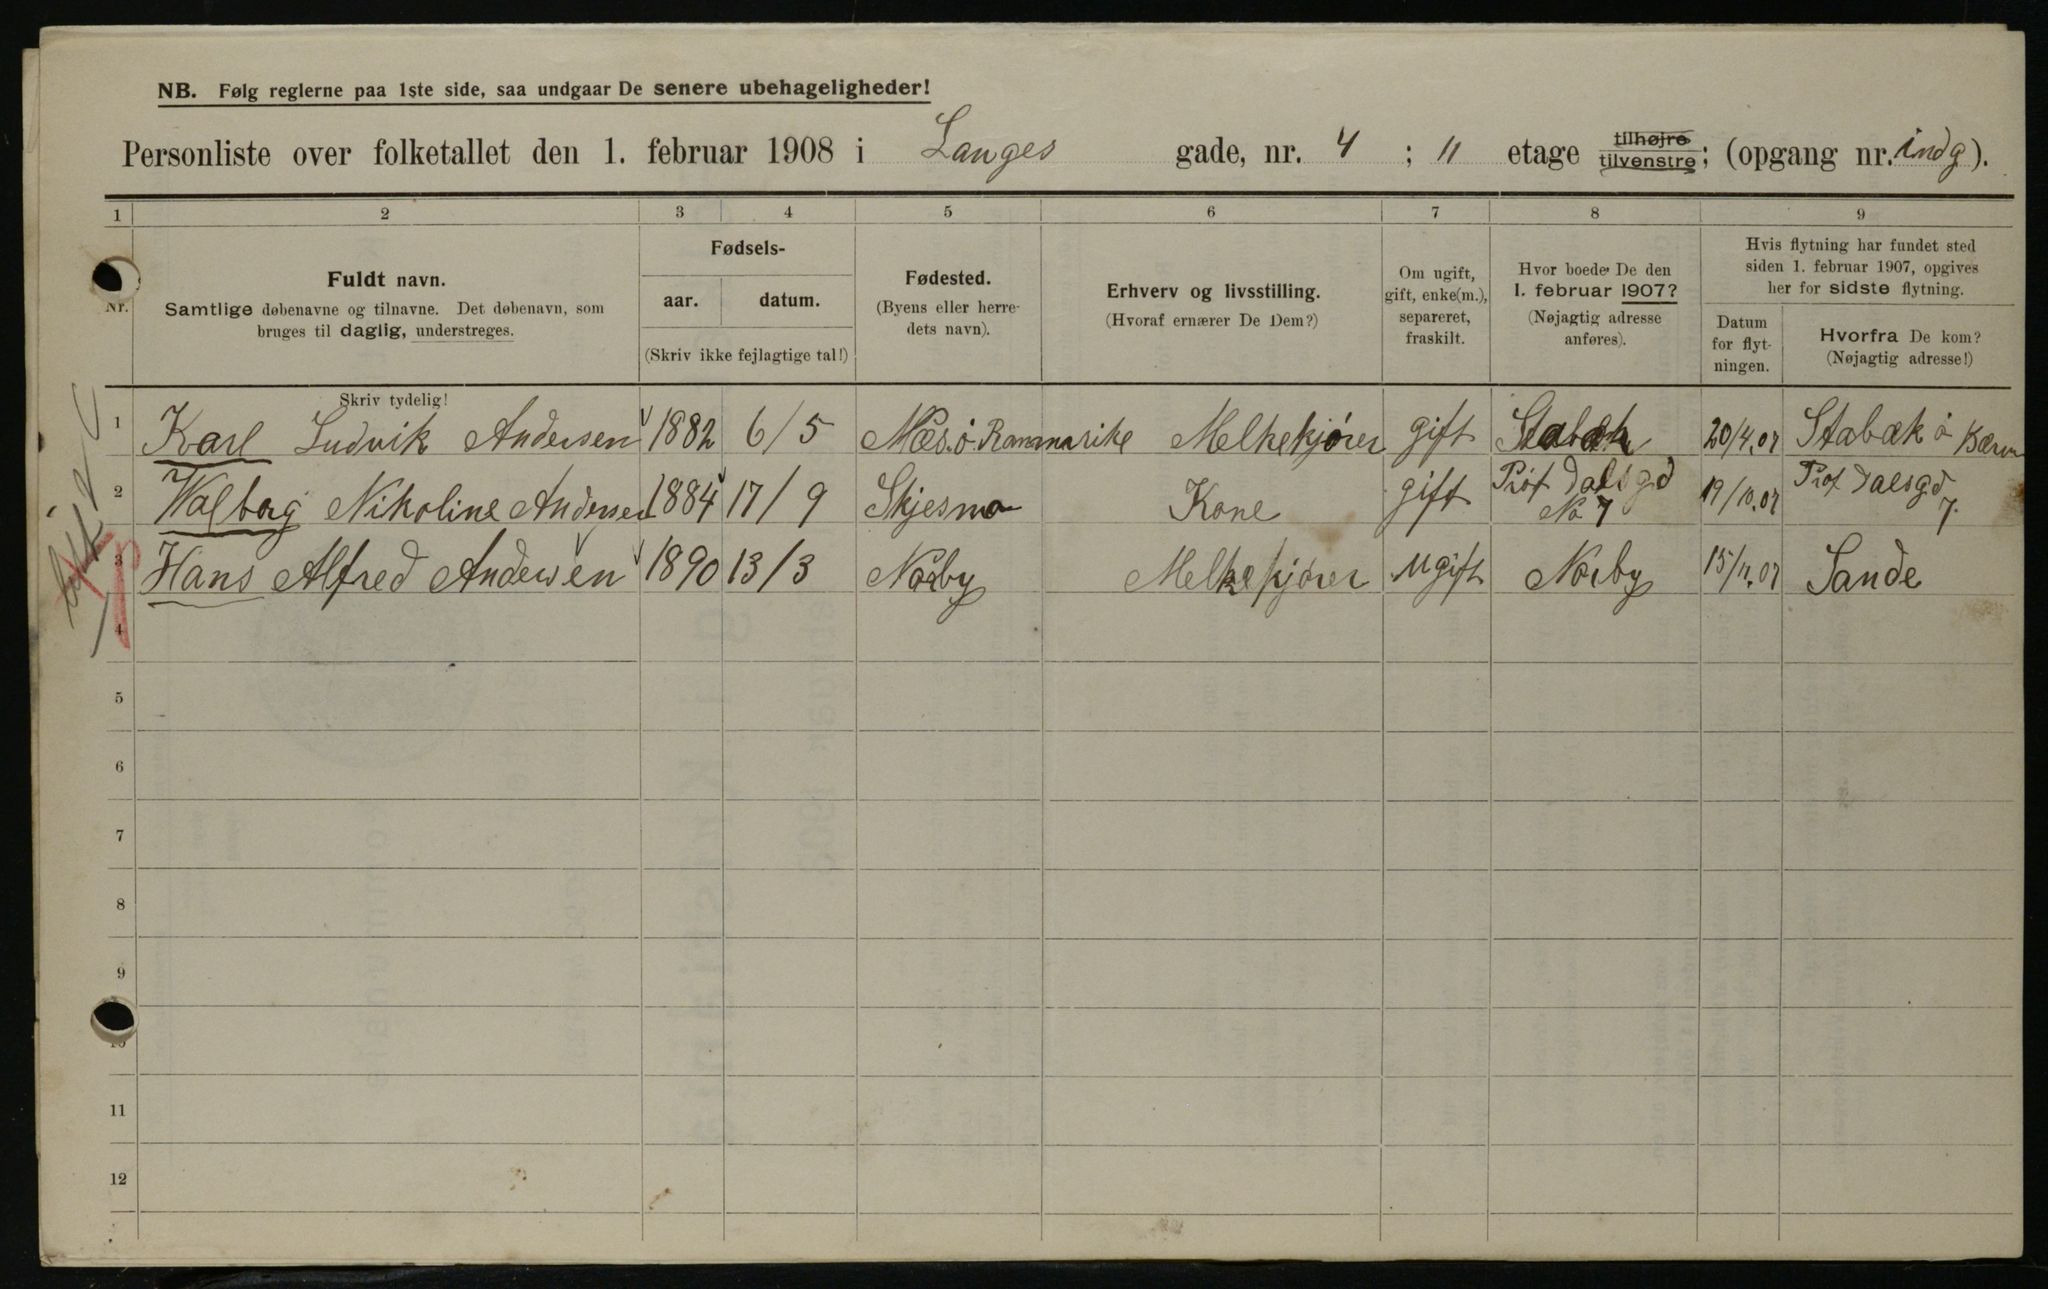 NB. Følg reglerne paa 1ste side, saa undgaar De senere ubehageligheder!
Personliste over folketallet den 1. februar 1908 i Langes gade, nr. 4 ; 11 etage tilhøjre tilvenstre; (opgang nr. indg).
1 2 3 4 5 6 7 8 9
Nr.
Fuldt navn.
Samtlige døbenavne og tilnavne. Det døbenavn, som
bruges til daglig, understreges.
Skriv tydelig!
Fødsels-
aar. datum.
(Skriv ikke fejlagtige tal!)
Fødested.
(Byens eller herre-
dets navn).
Erhverv og livsstilling.
(Hvoraf ernærer De Dem?)
Om ugift,
gift, enke(m.),
separeret,
fraskilt.
Hvor boede De den
1. februar 1907?
(Nøjagtig adresse
anføres).
Hvis flytning har fundet sted
siden 1. februar 1907, opgives
her for sidste flytning.
Datum
for flyt-
ningen.
Hvorfra De kom?
(Nøjagtig adresse!)
1 Karl Ludvik Andersen 1882 6/5 Næs. ö. Rammarike Melkekjører gift Stabæk 20/4.07 Stabæk ö Bærum
2 Walborg Nikoline Andersen 1884 17/9 Skjesmo Kone gift Prof Dalsgd No 7 19/10.07 Prof Dalsgd 7.
3 Hans Alfred Andersen 1890 13/3 Nörby Melkekjører Ugift Nörby 15/11.07 Sande
4
5
6
7
8
9
10
11
12